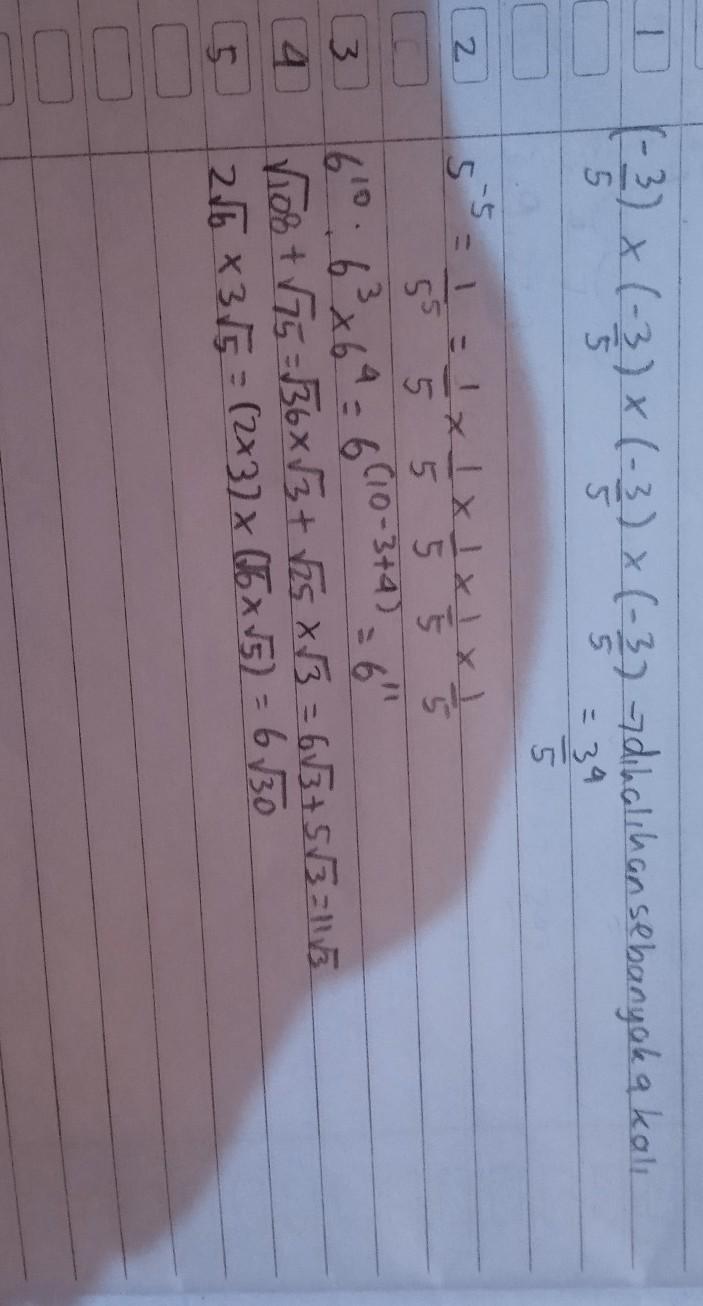 1 (-3/5) × (-3/5) × (-3/5) × (-3/5) → dikalikan sebanyak 4 kali
= 3⁴/5
2 5⁻⁵ = 1/5⁵ = 1/5 × 1/5 × 1/5 × 1/5 × 1/5
3 6¹⁰ . 6³ × 6⁴ = 6⁽¹⁰⁻³⁺⁴⁾ = 6¹¹
4 √108 + √75 = √36 × √3 + √25 × √3 = 6√3 + 5√3 = 11√3
5 2√6 × 3√5 = (2×3) × (√6 × √5) = 6√30